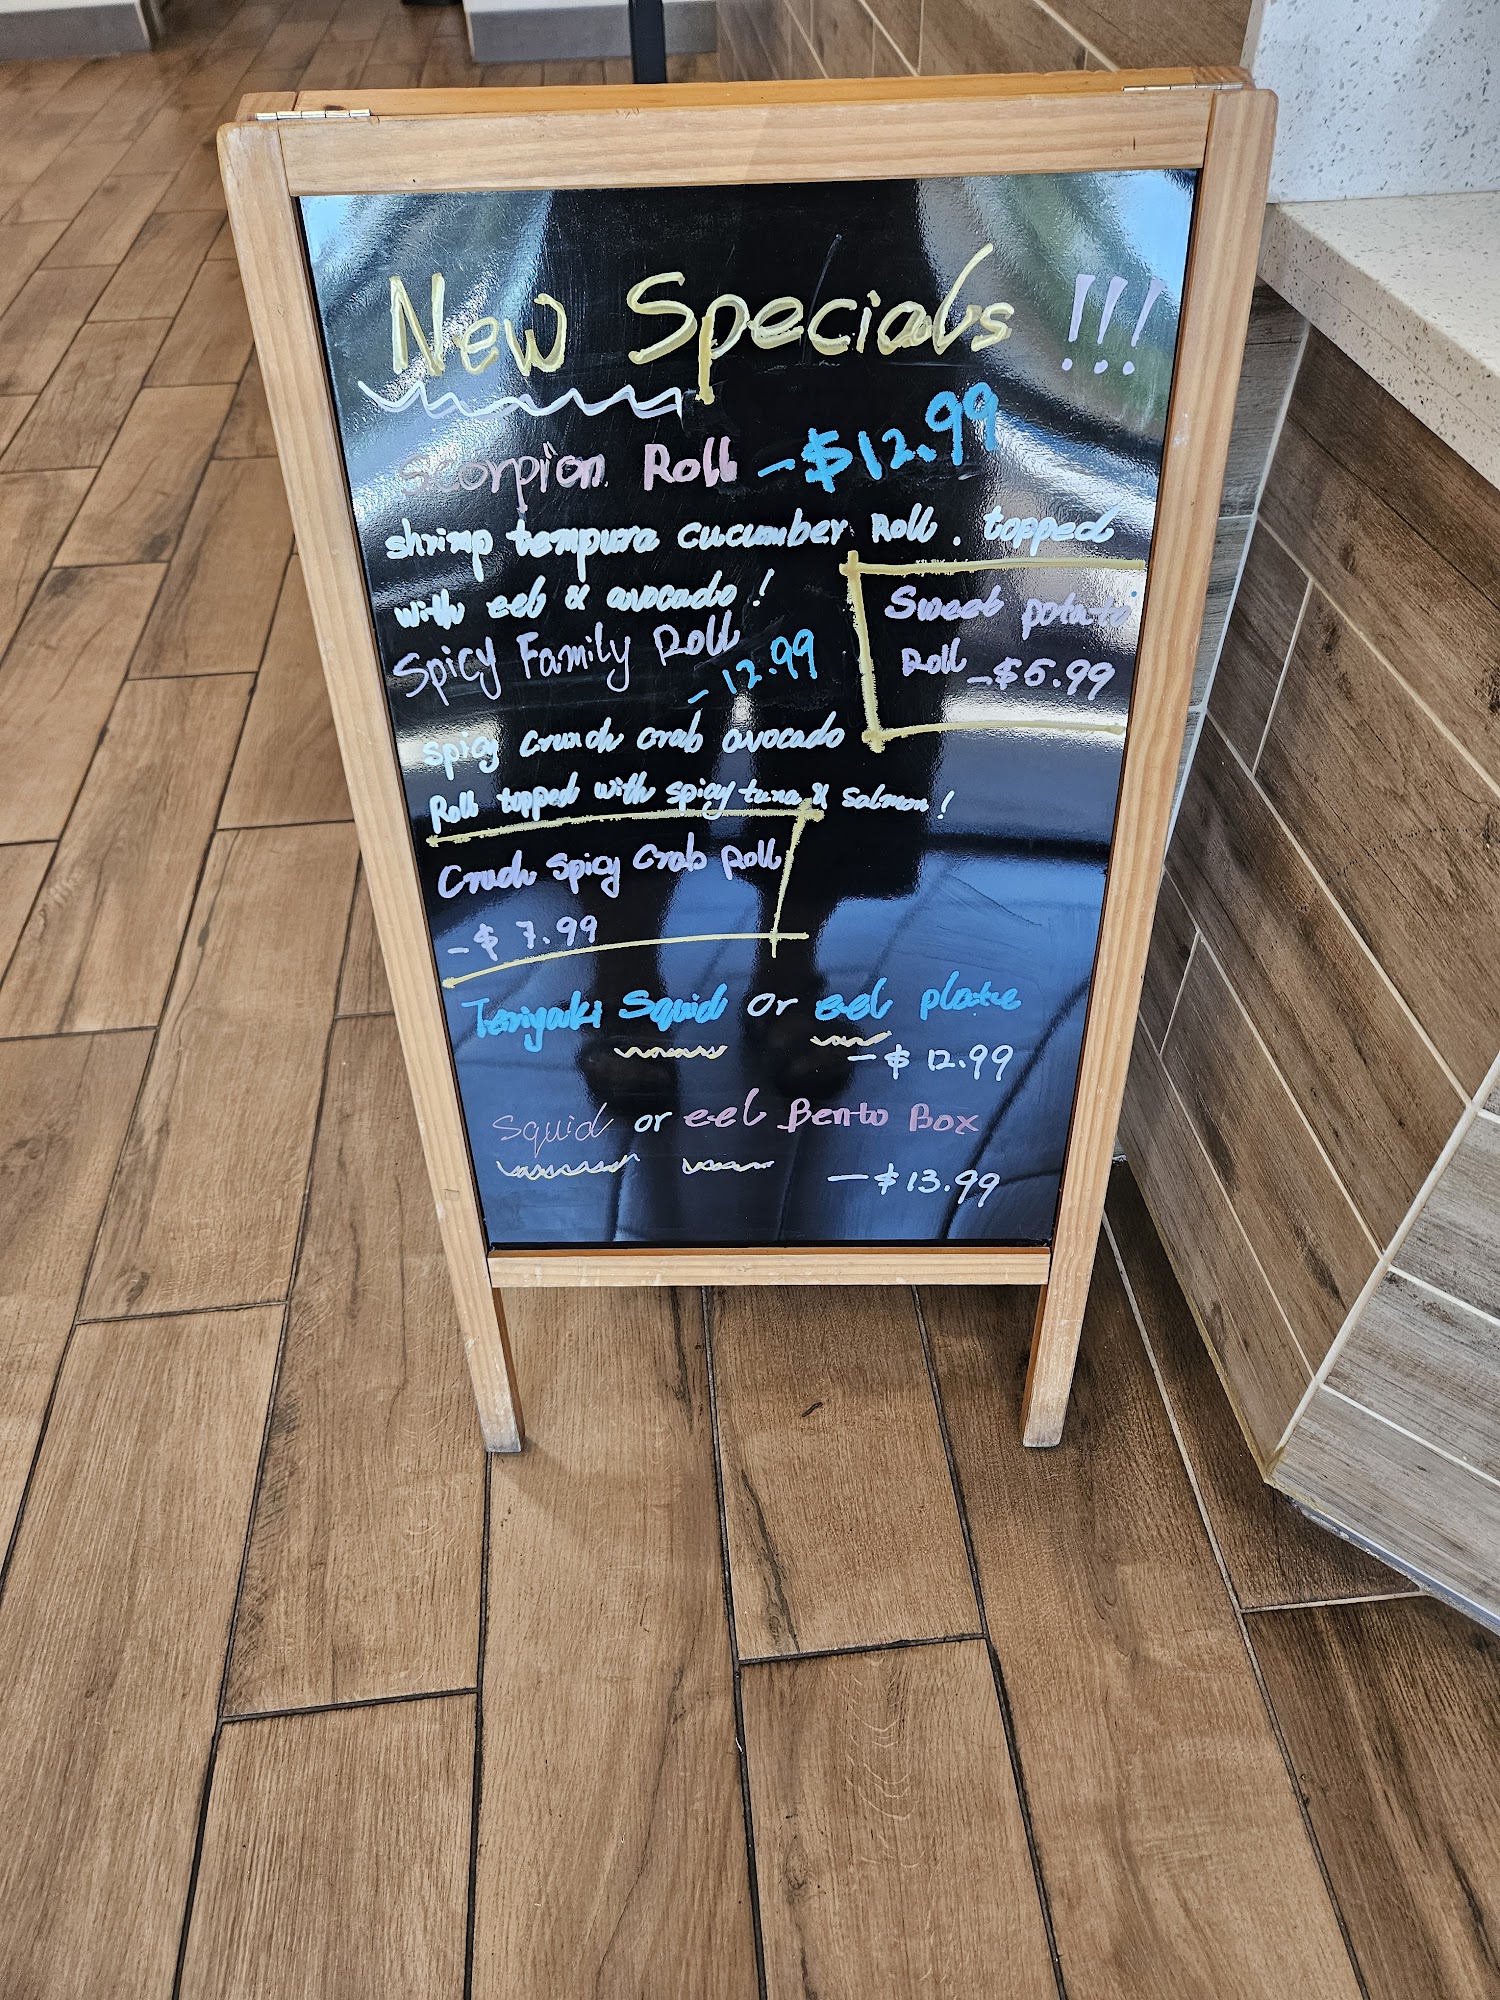 New Specials !!!
Scorpion Roll -$12.99
shrimp tempura cucumber Roll. topped
with eel & avocado!
Sweet potato
Roll -$5.99
Spicy Family Roll
-12.99
spicy crunch crab avocado
Roll topped with spicy tuna & salmon!
Crunch spicy crab Roll
-$7.99
Teriyaki Squid or eel plate
-$12.99
Squid or eel Bento Box
-$13.99